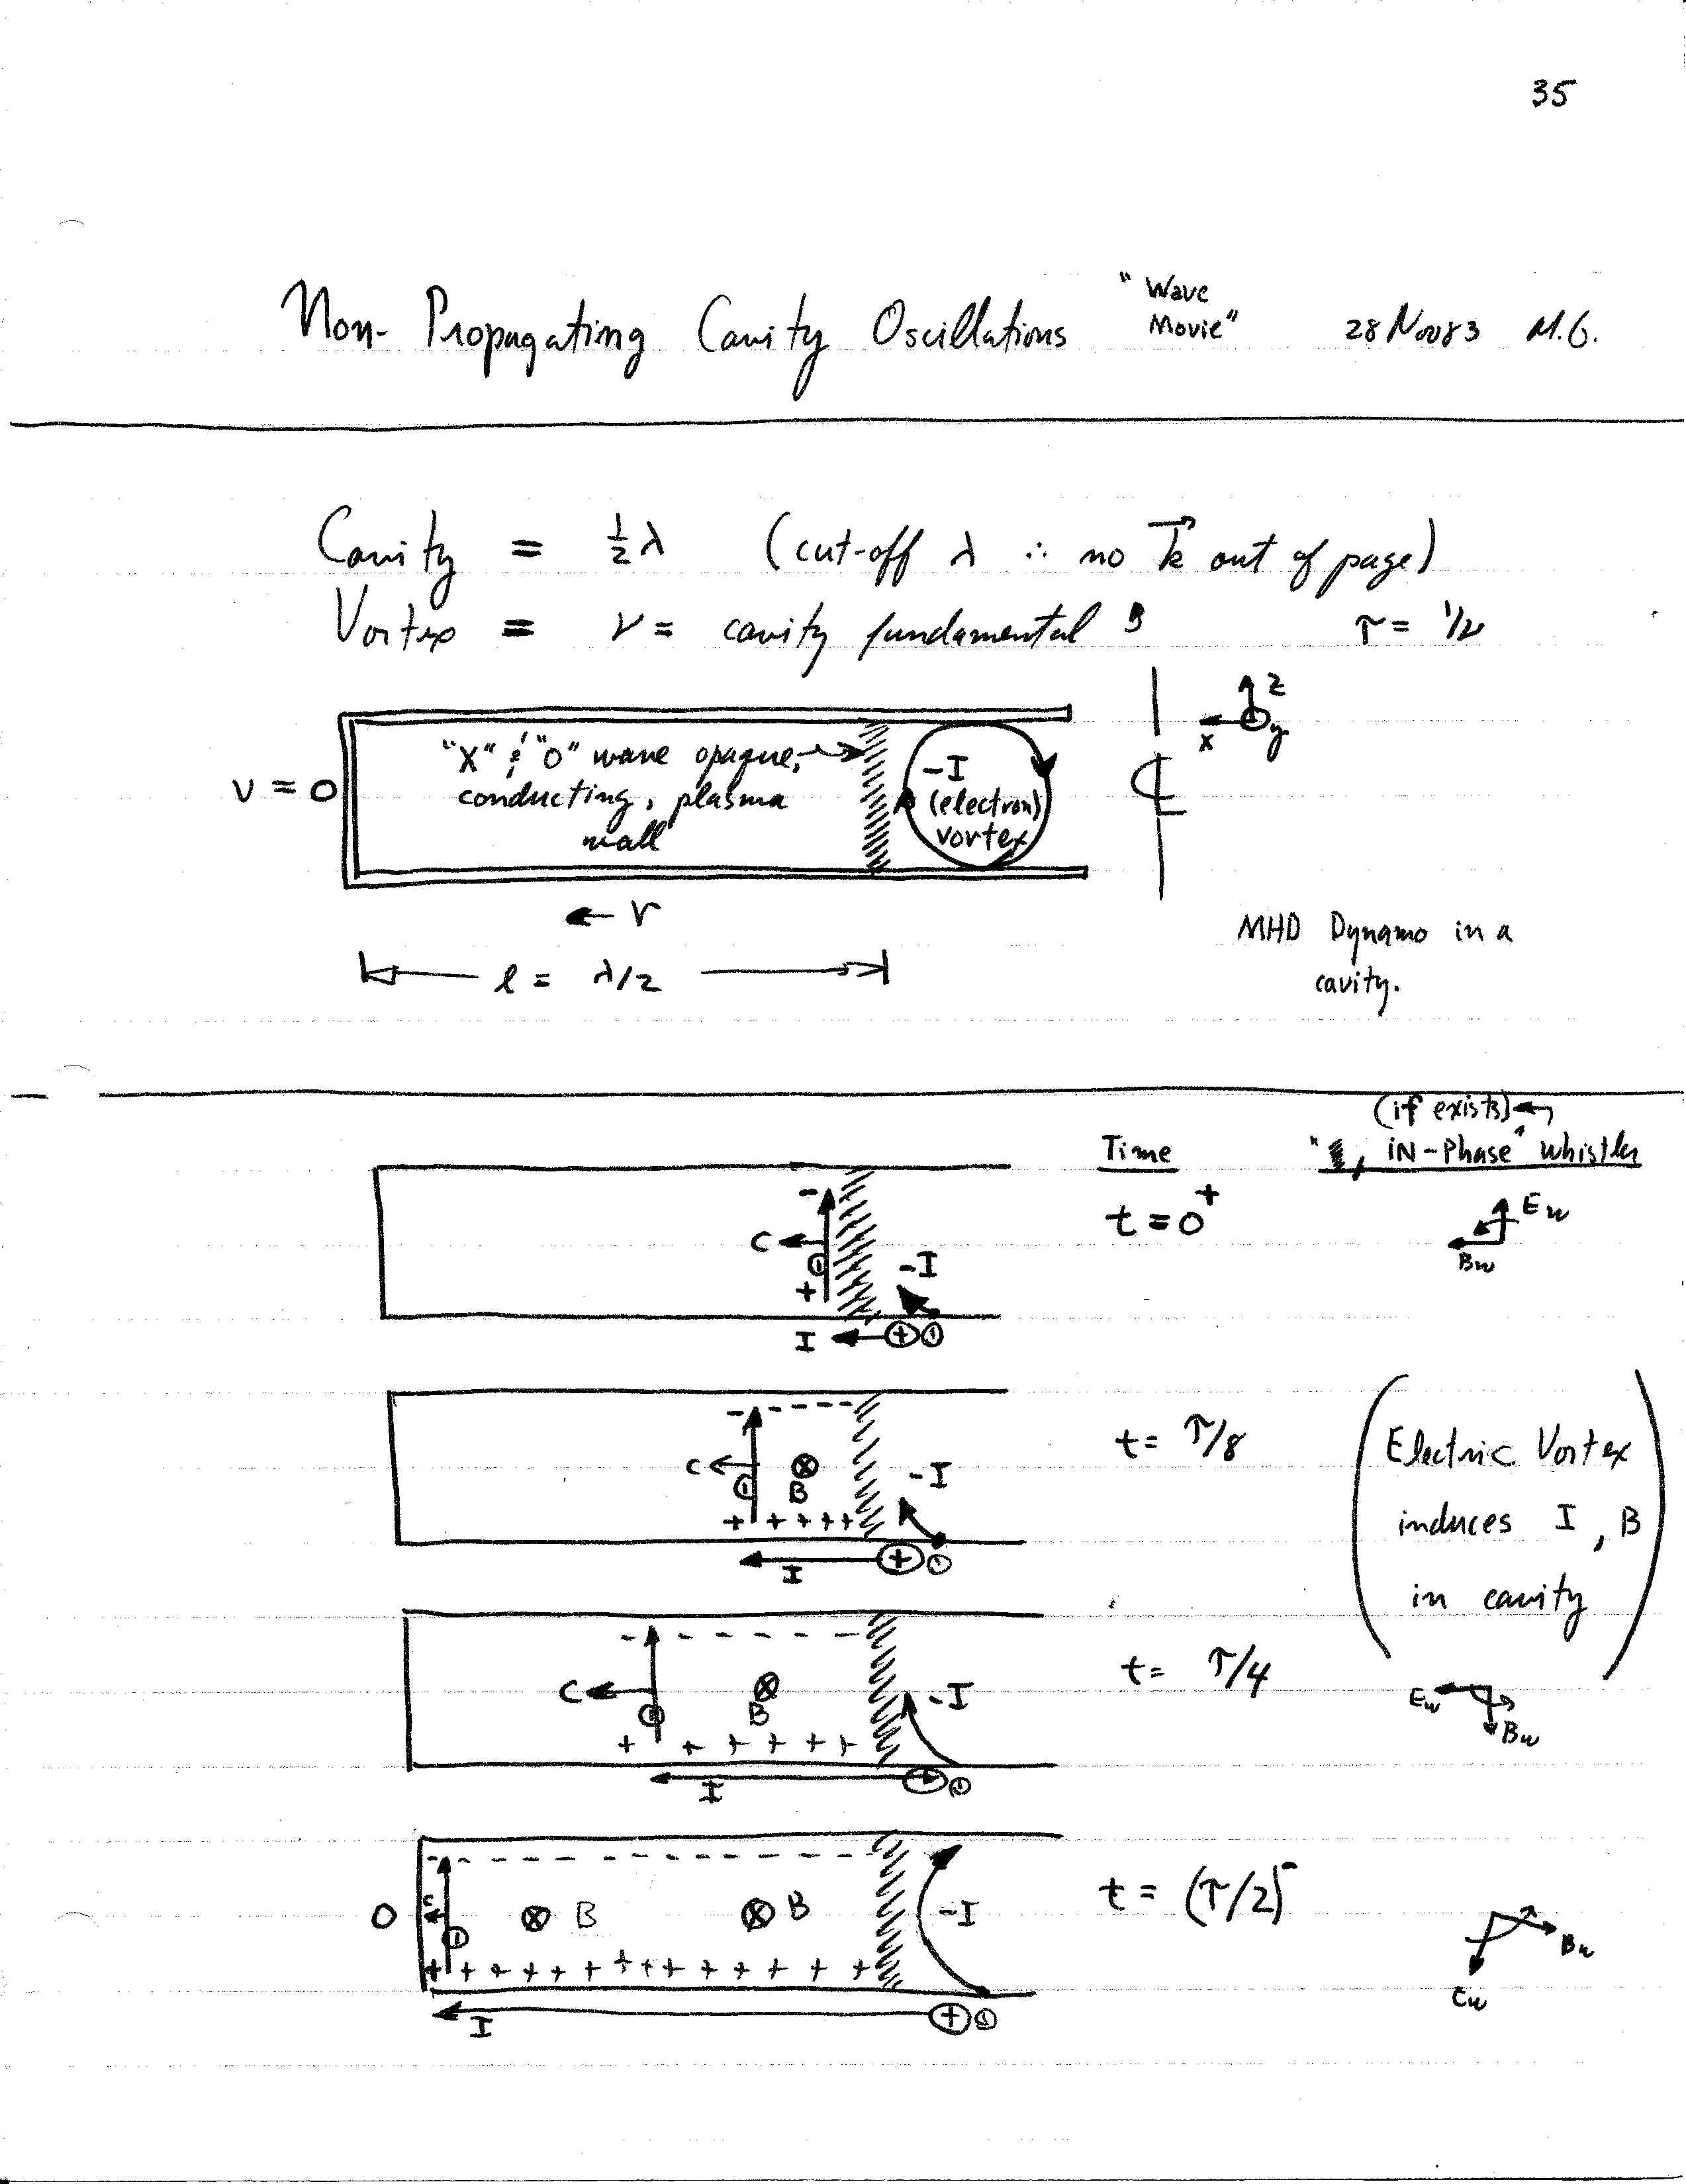 35
Non-Propagating Cavity Oscillations "Wave Movie" 28 Nov 83 M.G.
Cavity = ½λ (cut-off λ ∴ no k⃗ out of page)
Vortex = ν = cavity fundamental τ = 1/ν
z
x
y
"X" & "O" wave opaque,
conducting, plasma
wall
-I
(electron)
vortex
v = 0
℄
← r
l = λ/2
MHD Dynamo in a
cavity.
(if exists)
Time
", IN-Phase" whistler
t = 0⁺
-
C
①
+
-I
I
⊕ ①
Ew
Bw
t = τ/8
- - - - -
C
①
⊗
B
+ + + + +
-I
I
⊕ ①
(Electric Vortex
induces I, B
in cavity)
t = τ/4
- - - - - -
C
①
⊗
B
+ + + + + +
-I
I
⊕ ①
Ew
Bw
t = (τ/2)⁻
- - - - - - - - - - -
0
C
①
⊗ B
⊗ B
+ + + + + + + + + + + + +
-I
I
⊕ ①
Bw
Ew